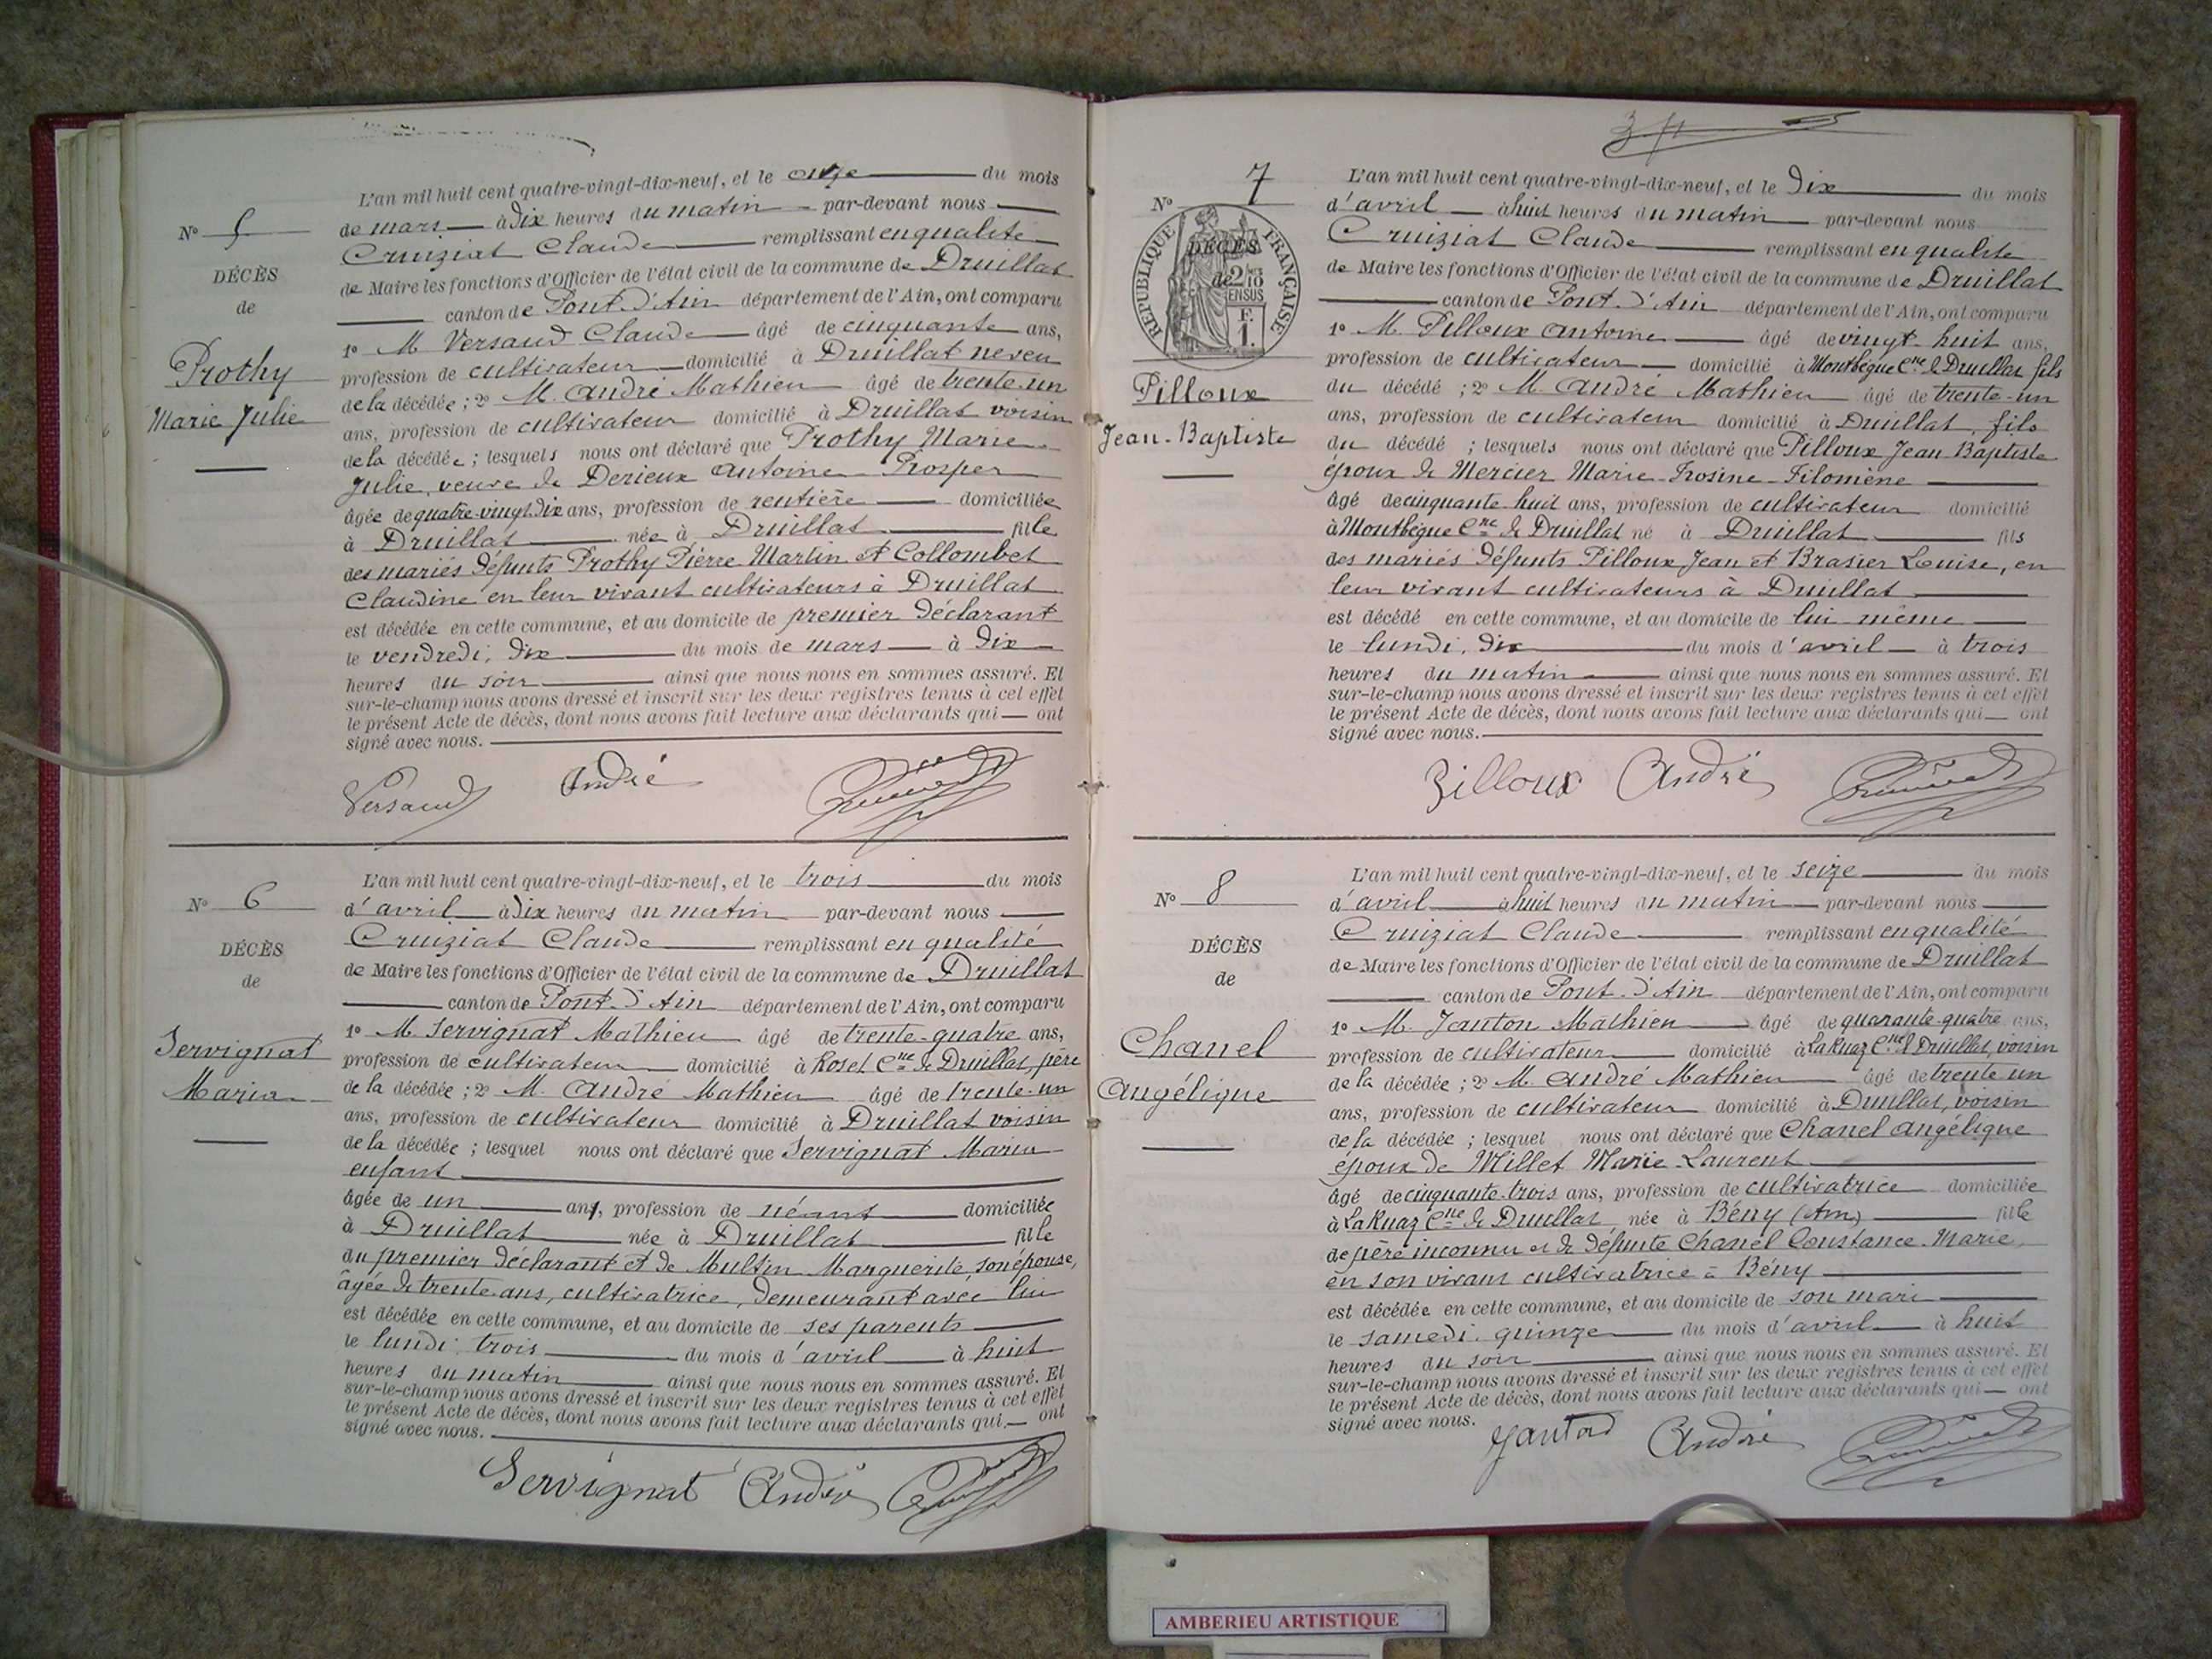 L'an mil huit cent quatre-vingt-dix-neuf, et le onze du mois
de mars à dix heures du matin par-devant nous
Cruiziat Claude remplissant en qualité
de Maire les fonctions d'Officier de l'état civil de la commune de Druillat
canton de Pont-d'Ain département de l'Ain, ont comparu
1º M Versaud Claude âgé de cinquante ans,
profession de cultivateur domicilié à Druillat neveu
de la décédée ; 2º M. André Mathieu âgé de trente-un
ans, profession de cultivateur domicilié à Druillat voisin
de la décédée ; lesquels nous ont déclaré que Prothy Marie
Julie, veuve de Derieux Antoine Prosper
âgée de quatre-vingt-dix ans, profession de rentière domiciliée
à Druillat née à Druillat fille
des mariés défunts Prothy Pierre Martin et Collombet
Claudine en leur vivant cultivateurs à Druillat
est décédée en cette commune, et au domicile de premier déclarant
le vendredi, dix du mois de mars à dix
heures du soir ainsi que nous nous en sommes assuré. Et
sur-le-champ nous avons dressé et inscrit sur les deux registres tenus à cet effet
le présent Acte de décès, dont nous avons fait lecture aux déclarants qui ont
signé avec nous.
Nº 5
DÉCÈS
de
Prothy
Marie Julie
Versaud André
L'an mil huit cent quatre-vingt-dix-neuf, et le trois du mois
d'avril à dix heures du matin par-devant nous
Cruiziat Claude remplissant en qualité
de Maire les fonctions d'Officier de l'état civil de la commune de Druillat
canton de Pont-d'Ain département de l'Ain, ont comparu
1º M. Servignat Mathieu âgé de trente-quatre ans,
profession de cultivateur domicilié à Rosel Cne de Druillat, père
de la décédée ; 2º M. André Mathieu âgé de trente-un
ans, profession de cultivateur domicilié à Druillat voisin
de la décédée ; lesquel nous ont déclaré que Servignat Maria
enfant
âgée de un an, profession de néant domiciliée
à Druillat née à Druillat fille
du premier déclarant et de Multin Marguerite, son épouse,
âgée de trente ans, cultivatrice, demeurant avec lui
est décédée en cette commune, et au domicile de ses parents
le lundi, trois du mois d'avril à huit
heures du matin ainsi que nous nous en sommes assuré. Et
sur-le-champ nous avons dressé et inscrit sur les deux registres tenus à cet effet
le présent Acte de décès, dont nous avons fait lecture aux déclarants qui ont
signé avec nous.
Nº 6
DÉCÈS
de
Servignat
Maria
Servignat André
L'an mil huit cent quatre-vingt-dix-neuf, et le dix du mois
d'avril à huit heures du matin par-devant nous
Cruiziat Claude remplissant en qualité
de Maire les fonctions d'Officier de l'état civil de la commune de Druillat
canton de Pont-d'Ain département de l'Ain, ont comparu
1º M. Pilloux Antoine âgé de vingt-huit ans,
profession de cultivateur domicilié à Montbègue Cne de Druillat fils
du décédé ; 2º M. André Mathieu âgé de trente-un
ans, profession de cultivateur domicilié à Druillat, fils
du décédé ; lesquels nous ont déclaré que Pilloux Jean-Baptiste
époux de Mercier Marie-Frosine-Filomène
âgé de cinquante-huit ans, profession de cultivateur domicilié
à Montbègue Cne de Druillat né à Druillat fils
des mariés défunts Pilloux Jean et Brasier Louise, en
leur vivant cultivateurs à Druillat
est décédé en cette commune, et au domicile de lui-même
le lundi, dix du mois d'avril à trois
heures du matin ainsi que nous nous en sommes assuré. Et
sur-le-champ nous avons dressé et inscrit sur les deux registres tenus à cet effet
le présent Acte de décès, dont nous avons fait lecture aux déclarants qui ont
signé avec nous.
Nº 7
DÉCÈS
de
RÉPUBLIQUE FRANÇAISE
2/10 EN SUS
F. 1.
Pilloux
Jean-Baptiste
Pilloux André
L'an mil huit cent quatre-vingt-dix-neuf, et le seize du mois
d'avril à huit heures du matin par-devant nous
Cruiziat Claude remplissant en qualité
de Maire les fonctions d'Officier de l'état civil de la commune de Druillat
canton de Pont-d'Ain département de l'Ain, ont comparu
1º M. Janton Mathieu âgé de quarante-quatre ans,
profession de cultivateur domicilié à La Ruaz Cne de Druillat, voisin
de la décédée ; 2º M. André Mathieu âgé de trente-un
ans, profession de cultivateur domicilié à Druillat, voisin
de la décédée ; lesquel nous ont déclaré que Chanel Angélique
époux de Millet Marie-Laurent
âgé de cinquante-trois ans, profession de cultivatrice domiciliée
à La Ruaz Cne de Druillat née à Bény (Ain) fille
de père inconnu et de défunte Chanel Constance-Marie,
en son vivant cultivatrice à Bény
est décédée en cette commune, et au domicile de son mari
le samedi, quinze du mois d'avril à huit
heures du soir ainsi que nous nous en sommes assuré. Et
sur-le-champ nous avons dressé et inscrit sur les deux registres tenus à cet effet
le présent Acte de décès, dont nous avons fait lecture aux déclarants qui ont
signé avec nous.
Nº 8
DÉCÈS
de
Chanel
Angélique
Janton André
AMBERIEU ARTISTIQUE